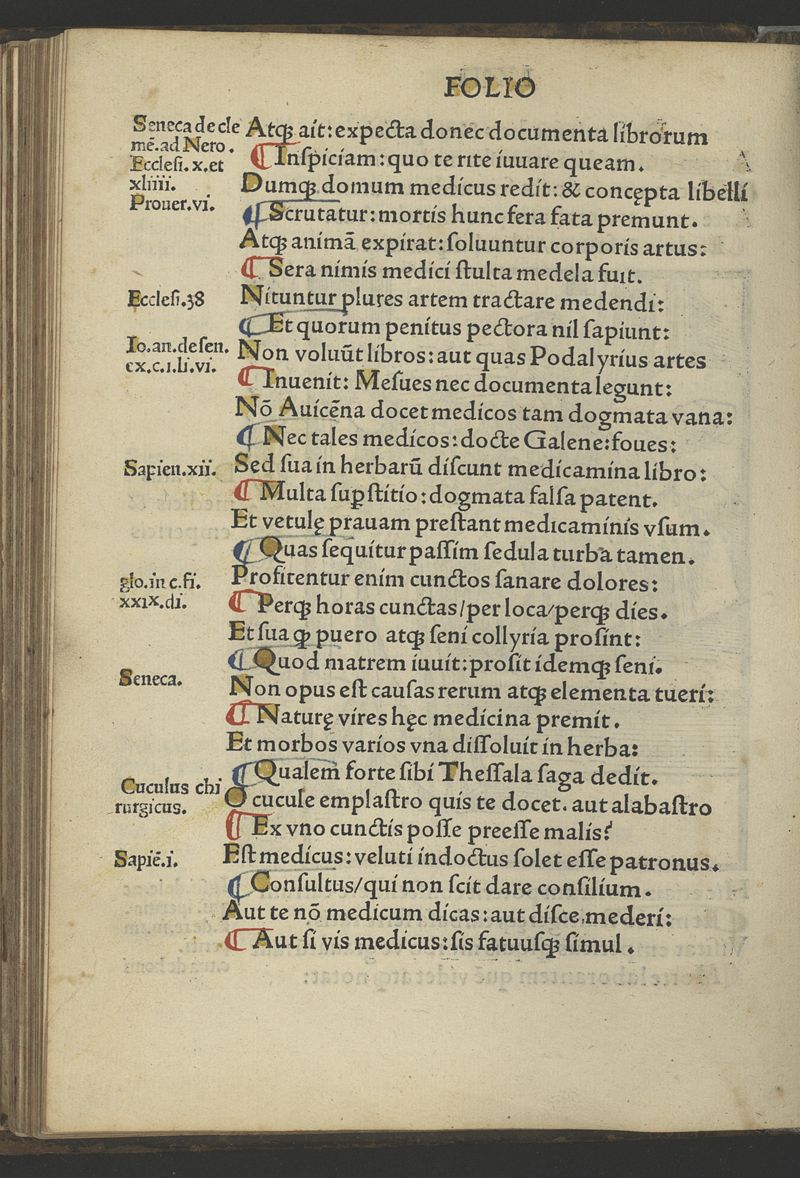 FOLIO
Seneca de cle
mē. ad Nero.
Ecclesi. x. et
xliiii.
Prouer. vi.
Atqꝫ ait: expecta donec documenta librorum
¶ Inspiciam: quo te rite iuuare queam.
Dumqꝫ domum medicus redit: & concępta libelli
¶ Scrutatur: mortis hunc fera fata premunt.
Atqꝫ animā expirat: soluuntur corporis artus:
¶ Sera nimis medici stulta medela fuit.
Ecclesi. 38
Nituntur plures artem tractare medendi:
¶ Et quorum penitus pectora nil sapiunt:
Io. an. de sen.
ex. c. i. li. vi.
Non voluūt libros: aut quas Podalyrius artes
¶ Inuenit: Mesues nec documenta legunt:
Nō Auicēna docet medicos tam dogmata vana:
¶ Nec tales medicos: docte Galene: foues:
Sapien. xii.
Sed sua in herbarū discunt medicamina libro:
¶ Multa suꝑstitio: dogmata falsa patent.
Et vetulę prauam prestant medicaminis vsum.
¶ Quas sequitur passim sedula turba tamen.
glo. in c. fi.
xxix. di.
Profitentur enim cunctos sanare dolores:
¶ Perqꝫ horas cunctas/ per loca/ perqꝫ dies.
Et sua qꝫ puero atqꝫ seni collyria prosint:
¶ Quod matrem iuuit: prosit idemqꝫ seni.
Seneca.
Non opus est causas rerum atqꝫ elementa tueri:
¶ Naturę vires hęc medicina premit.
Et morbos varios vna dissoluit in herba:
¶ Qualem forte sibi Thessala saga dedit.
Cuculus chi
rurgicus.
O cucule emplastro quis te docet. aut alabastro
¶ Ex vno cunctis posse preesse malis?
Sapiē. i.
Est medicus: veluti indoctus solet esse patronus.
¶ Consultus/ qui non scit dare consilium.
Aut te nō medicum dicas: aut disce mederi:
¶ Aut si vis medicus: sis fatuusqꝫ simul.